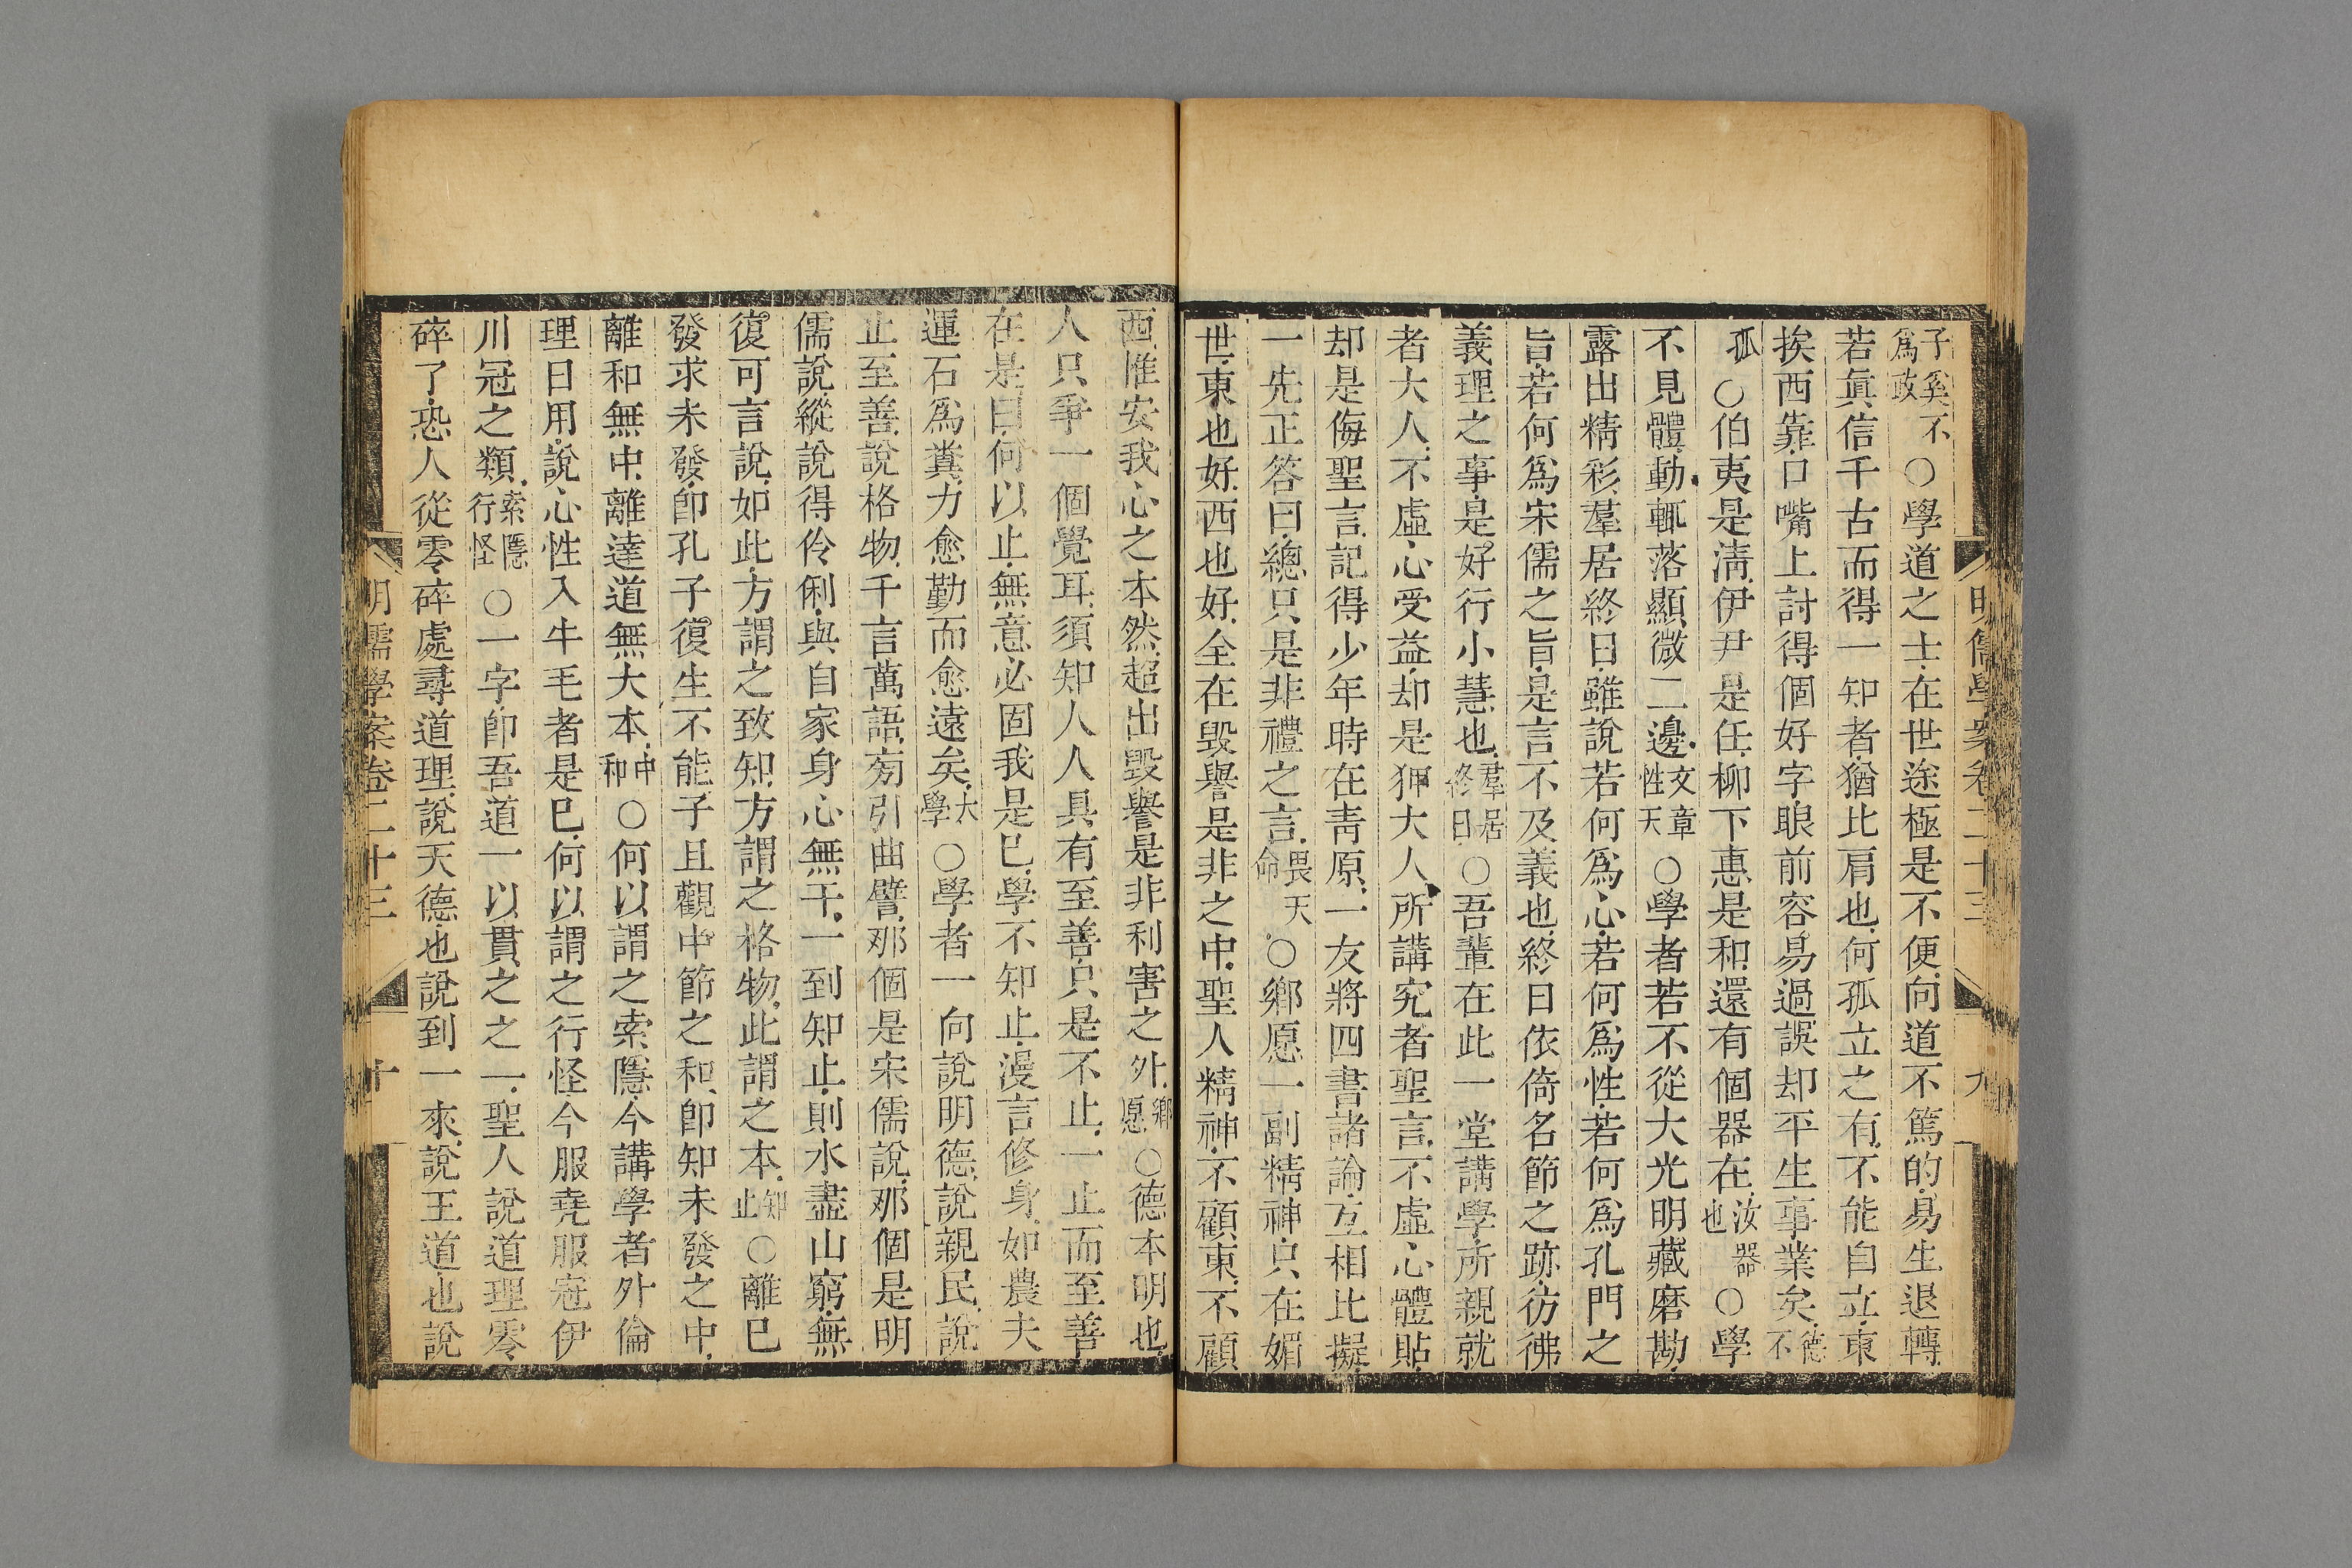 明儒學案卷二十三 九
子奚不爲政○學道之士在世途極是不便向道不篤的易生退轉
若眞信千古而得一知者猶比肩也何孤立之有不能自立東
挨西靠口嘴上討得個好字眼前容易過誤却平生事業矣德不
孤○伯夷是淸伊尹是任柳下惠是和還有個器在汝器也○學
不見體動輒落顯微二邊文章性天○學者若不從大光明藏磨勘
露出精彩羣居終日雖說若何爲心若何爲性若何爲孔門之
旨若何爲宋儒之旨是言不及義也終日依倚名節之跡彷彿
義理之事是好行小慧也羣居終日○吾輩在此一堂講學所親就
者大人不虛心受益却是狎大人所講究者聖言不虛心體貼
却是侮聖言記得少年時在靑原一友將四書諸論互相比擬
一先正答曰總只是非禮之言畏天命○鄕愿一副精神只在媚
世東也好西也好全在毀譽是非之中聖人精神不顧東不顧
西惟安我心之本然超出毀譽是非利害之外鄕愿○德本明也
人只爭一個覺耳須知人人具有至善只是不止一止而至善
在是曰何以止無意必固我是已學不知止漫言修身如農夫
運石爲糞力愈勤而愈遠矣大學○學者一向說明德說親民說
止至善說格物千言萬語旁引曲譬那個是宋儒說那個是明
儒說縱說得伶俐與自家身心無干一到知止則水盡山窮無
復可言說如此方謂之致知方謂之格物此謂之本知止○離已
發求未發卽孔子復生不能子且觀中節之和卽知未發之中
離和無中離達道無大本中和○何以謂之索隱今講學者外倫
理日用說心性入牛毛者是已何以謂之行怪今服堯服冠伊
川冠之類索隱行怪○一字卽吾道一以貫之之一聖人說道理零
碎了恐人從零碎處尋道理說天德也說到一來說王道也說
明儒學案卷二十三 十